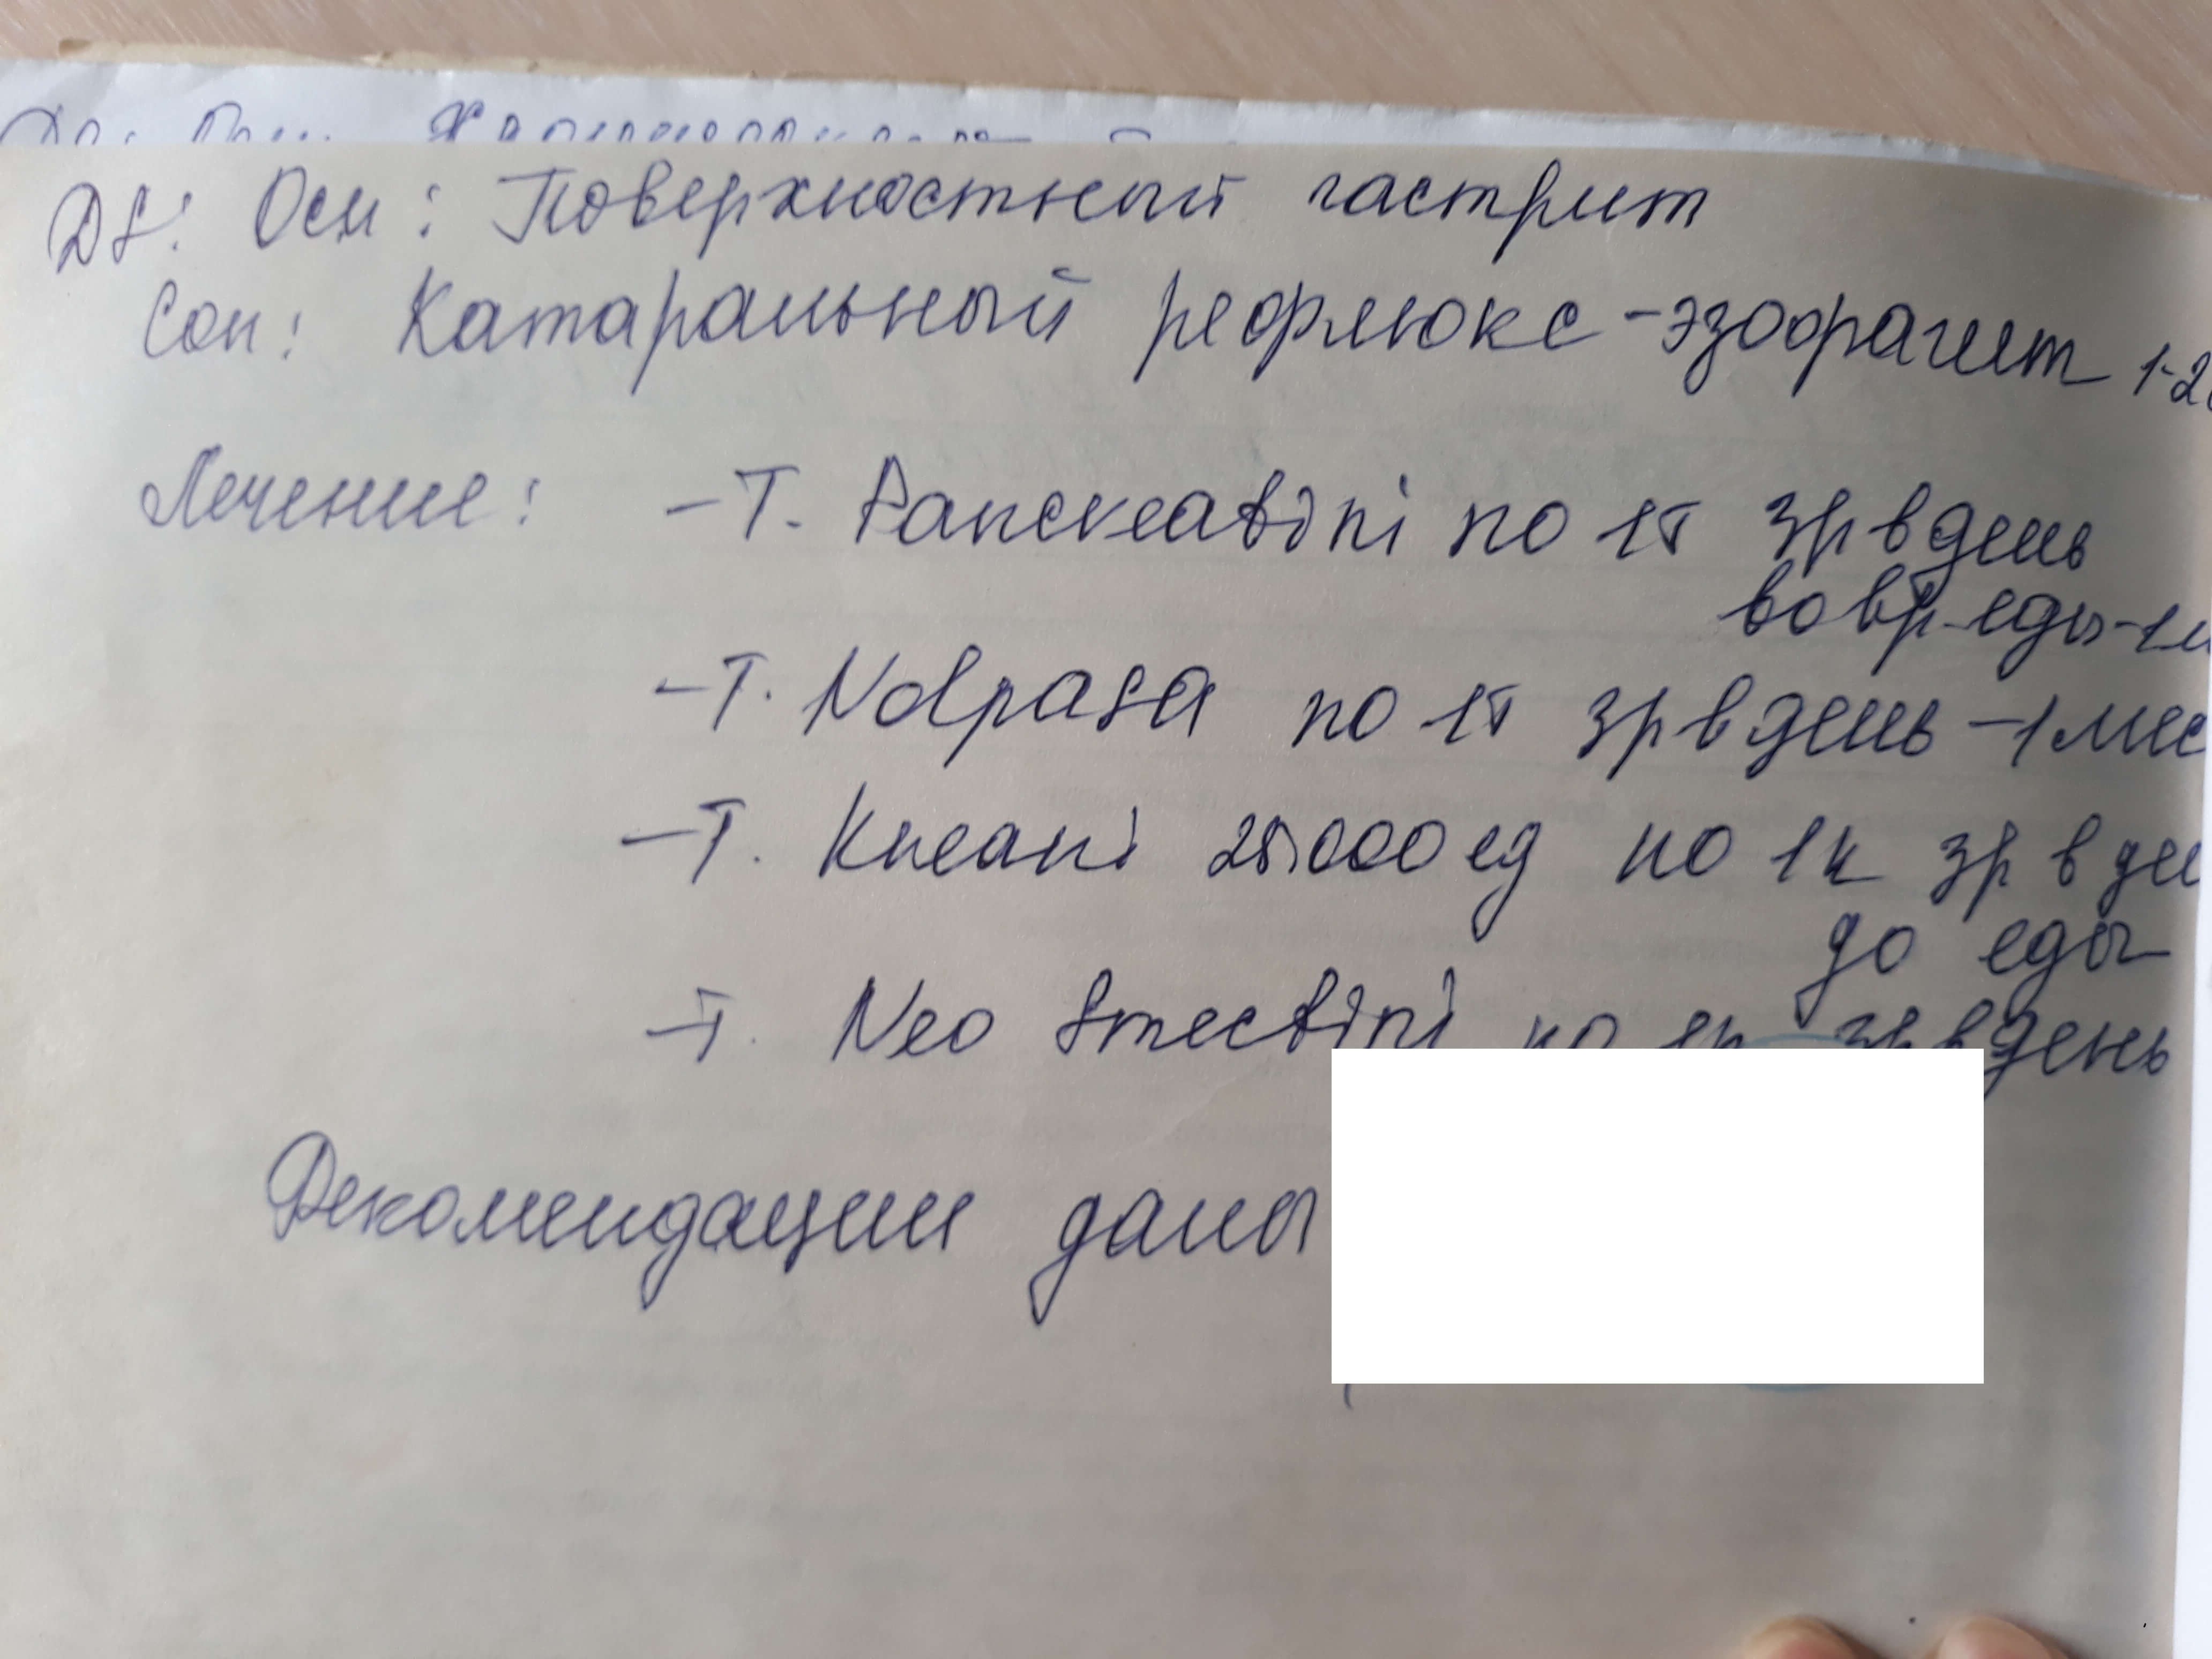 DS: Осн: Поверхностный гастрит
Соп: Катаральный рефлюкс-эзофагит 1-2
Лечение: -Т. Pancreatini по 1т 3р в день
во вр. еды-1м
-Т. Nolpasa по 1т 3р в день -1 мес
-Т. Kreani 25.000 ед по 1к 3р в де
до еды
-Т. Neo Smectini по 1п 3р в день
Рекомендации даны